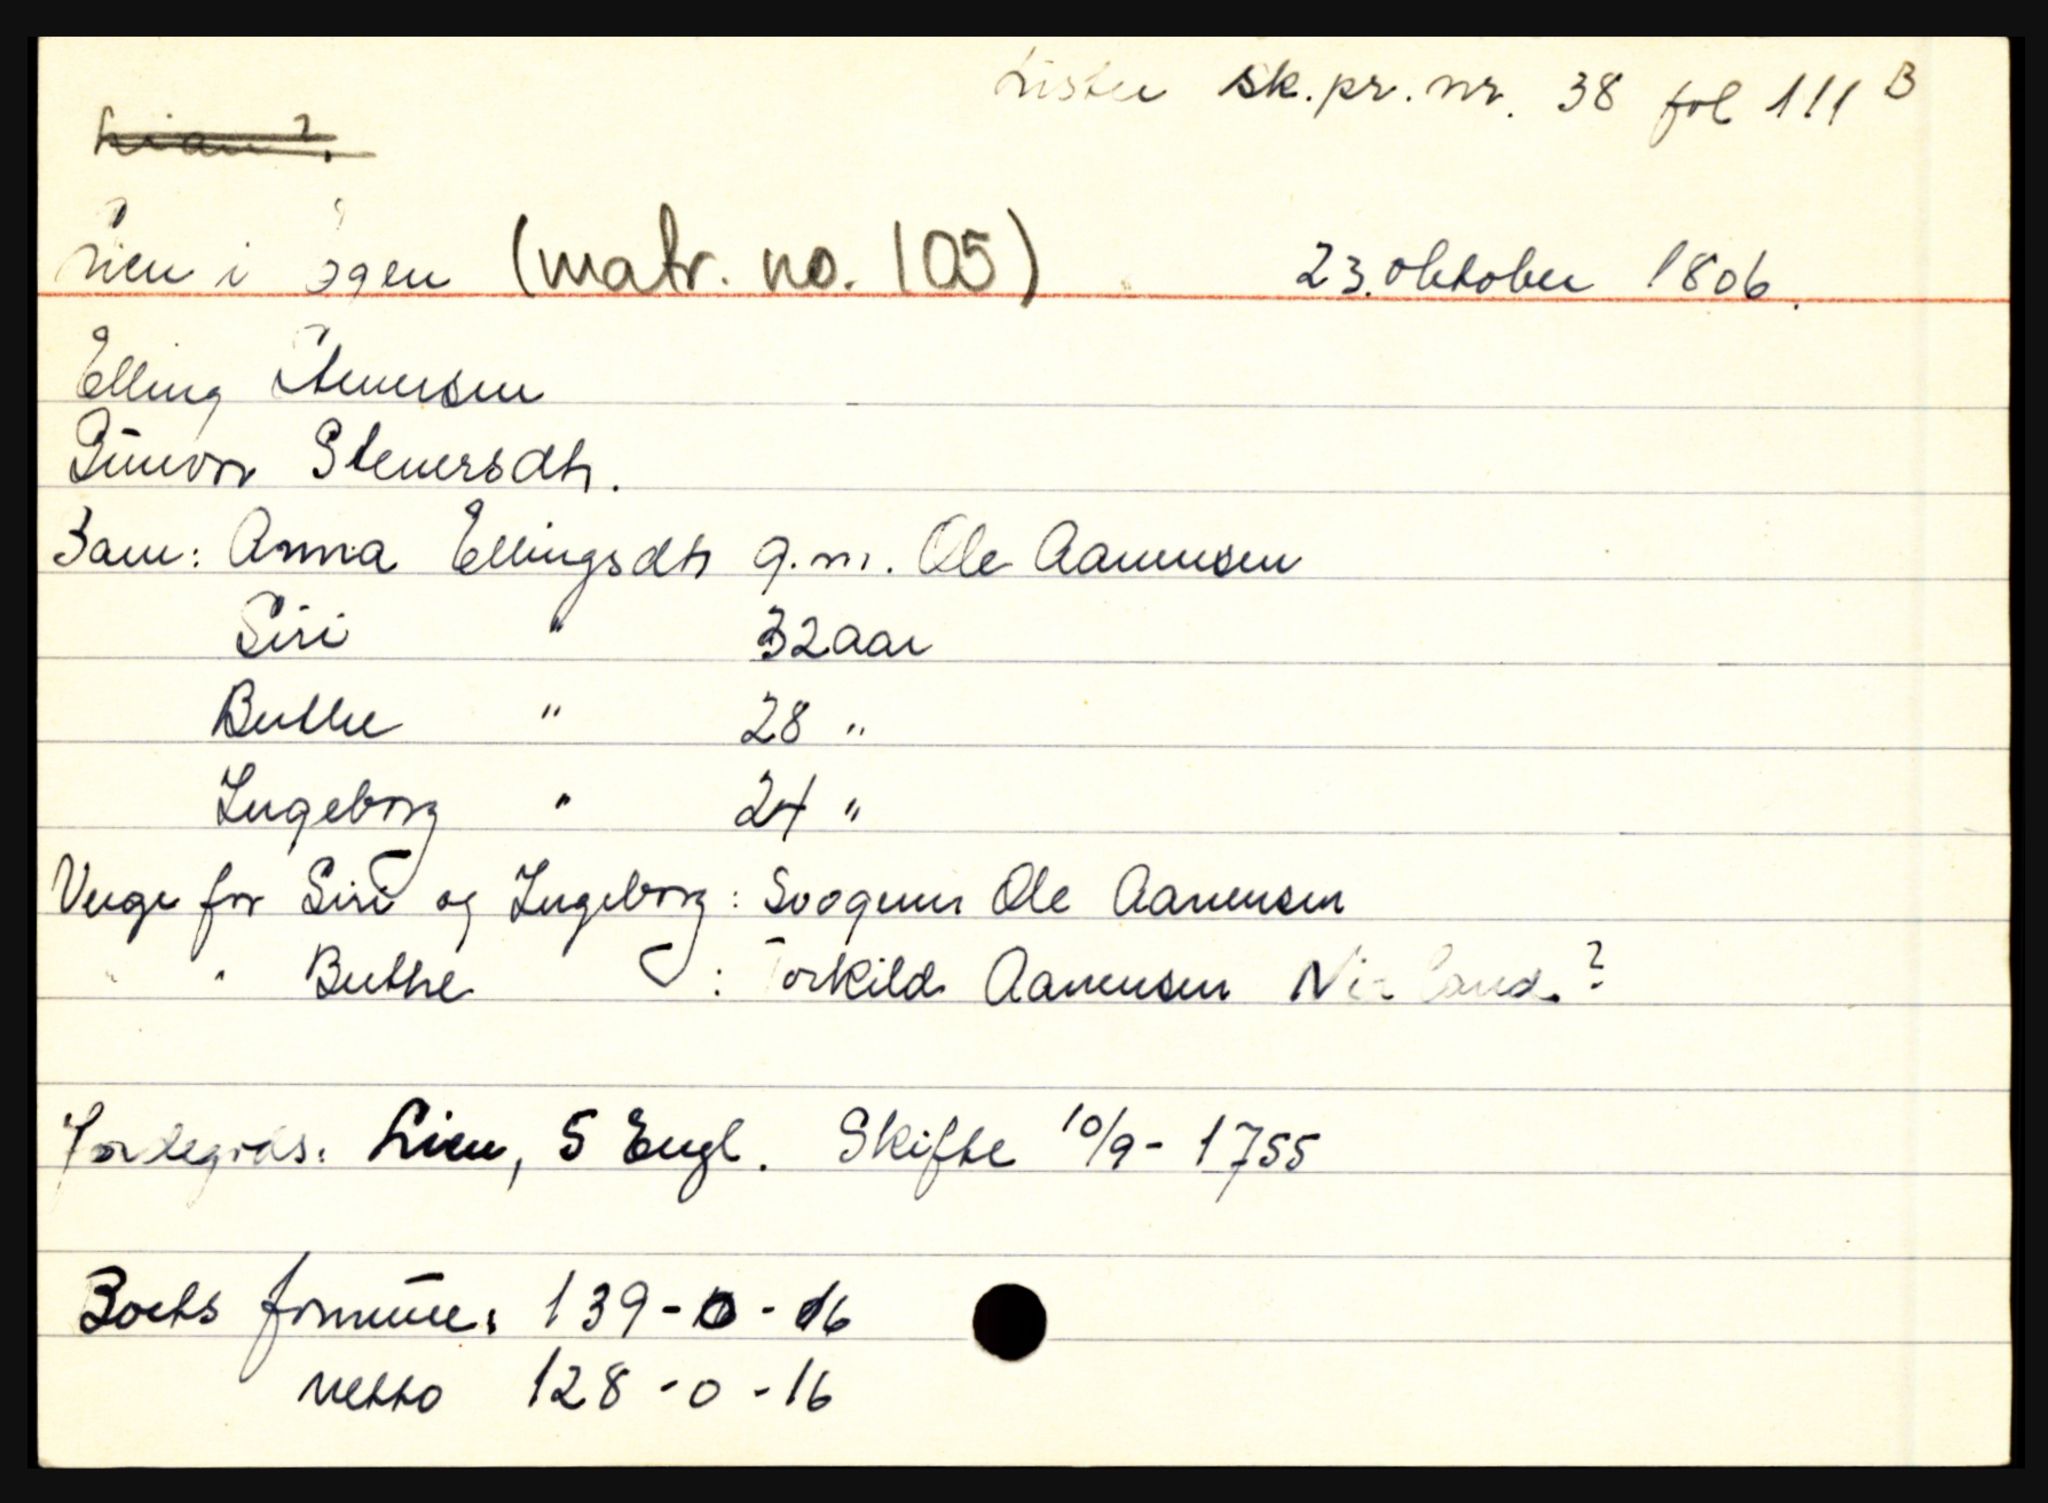 Lister sk.pr.nr. 38 fol 111 B
Lian?.
Lien i Egen (matr. no. 105) 23. oktober 1806.
Elling Stenersen
Gunvor Stenersdtr.
Barn: Anna Ellingsdtr g.m. Ole Aanensen
Siri " 32 aar
Berthe " 28 "
Ingeborg " 24 "
Verge for Siri og Ingeborg: Svogeren Ole Aanensen
" " Berthe : Torkild Aanensen Nirland?
Jordegods: Lien, 5 Engl. Skifte 10/9 - 1755
Boets formue: 139-0-16
netto 128-0-16